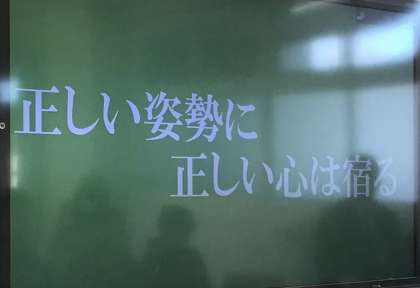 正しい姿勢に
正しい心は宿る